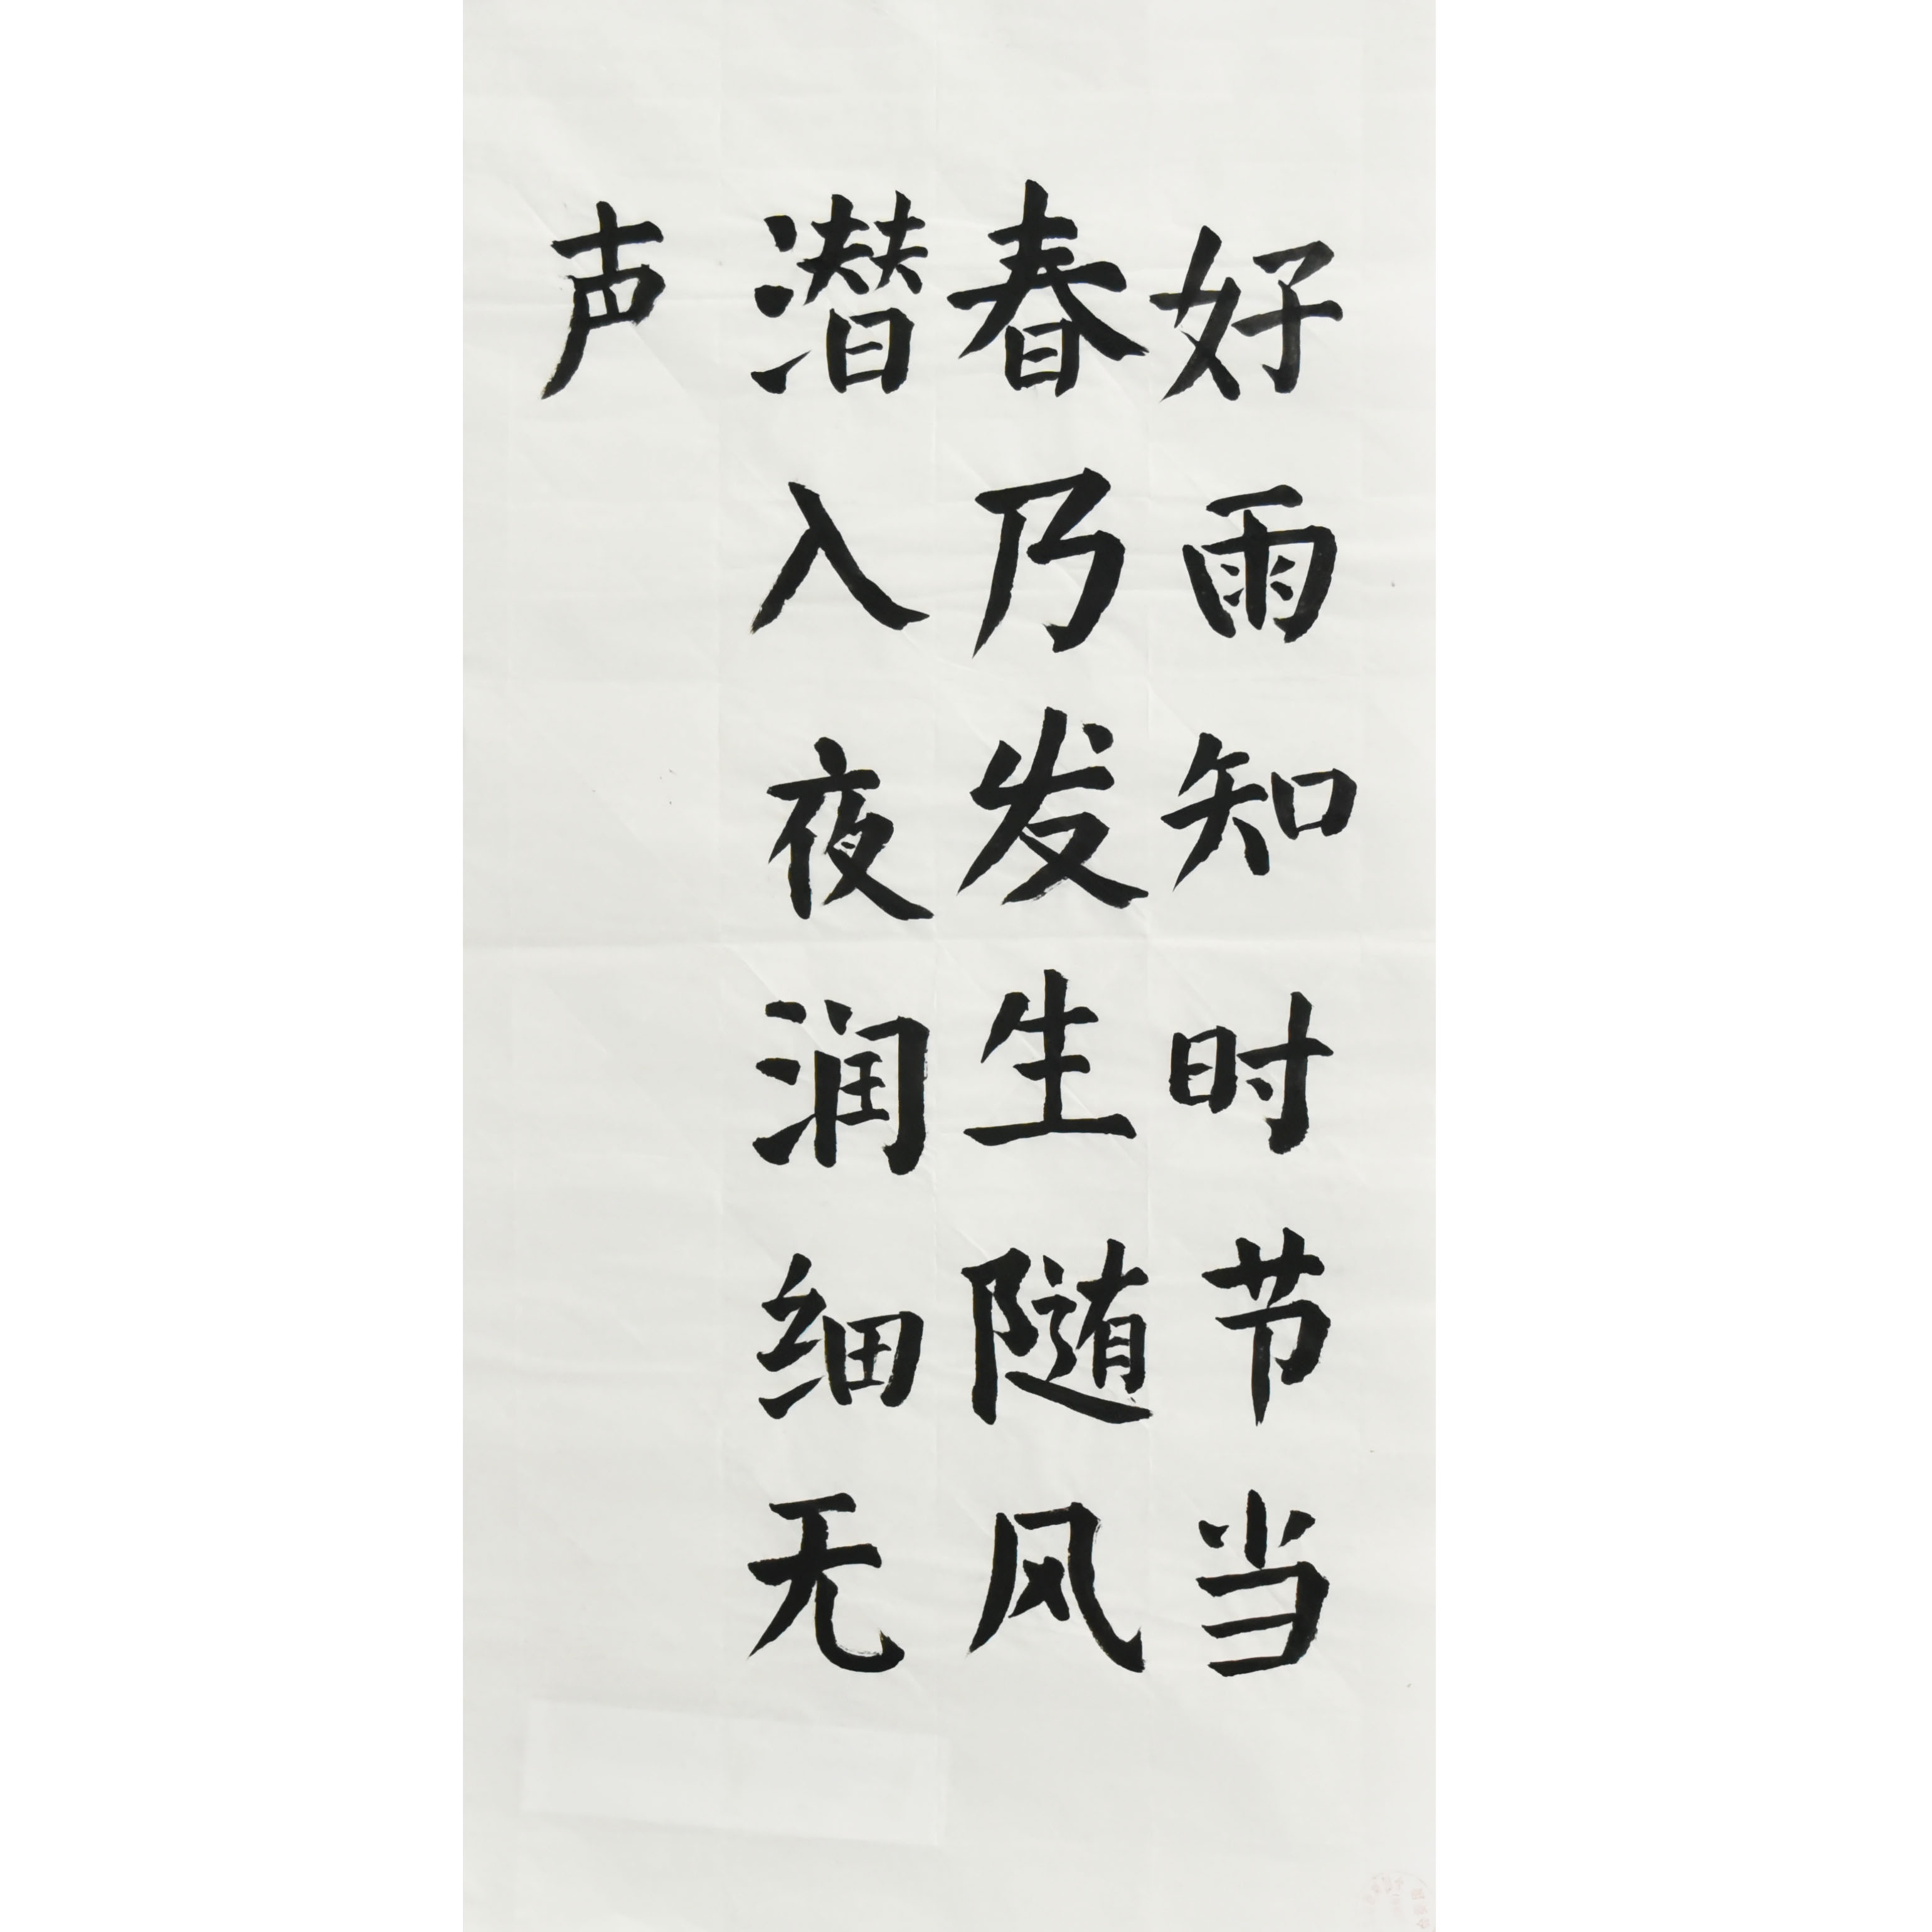 好雨知时节当
春乃发生随风
潜入夜润细无
声